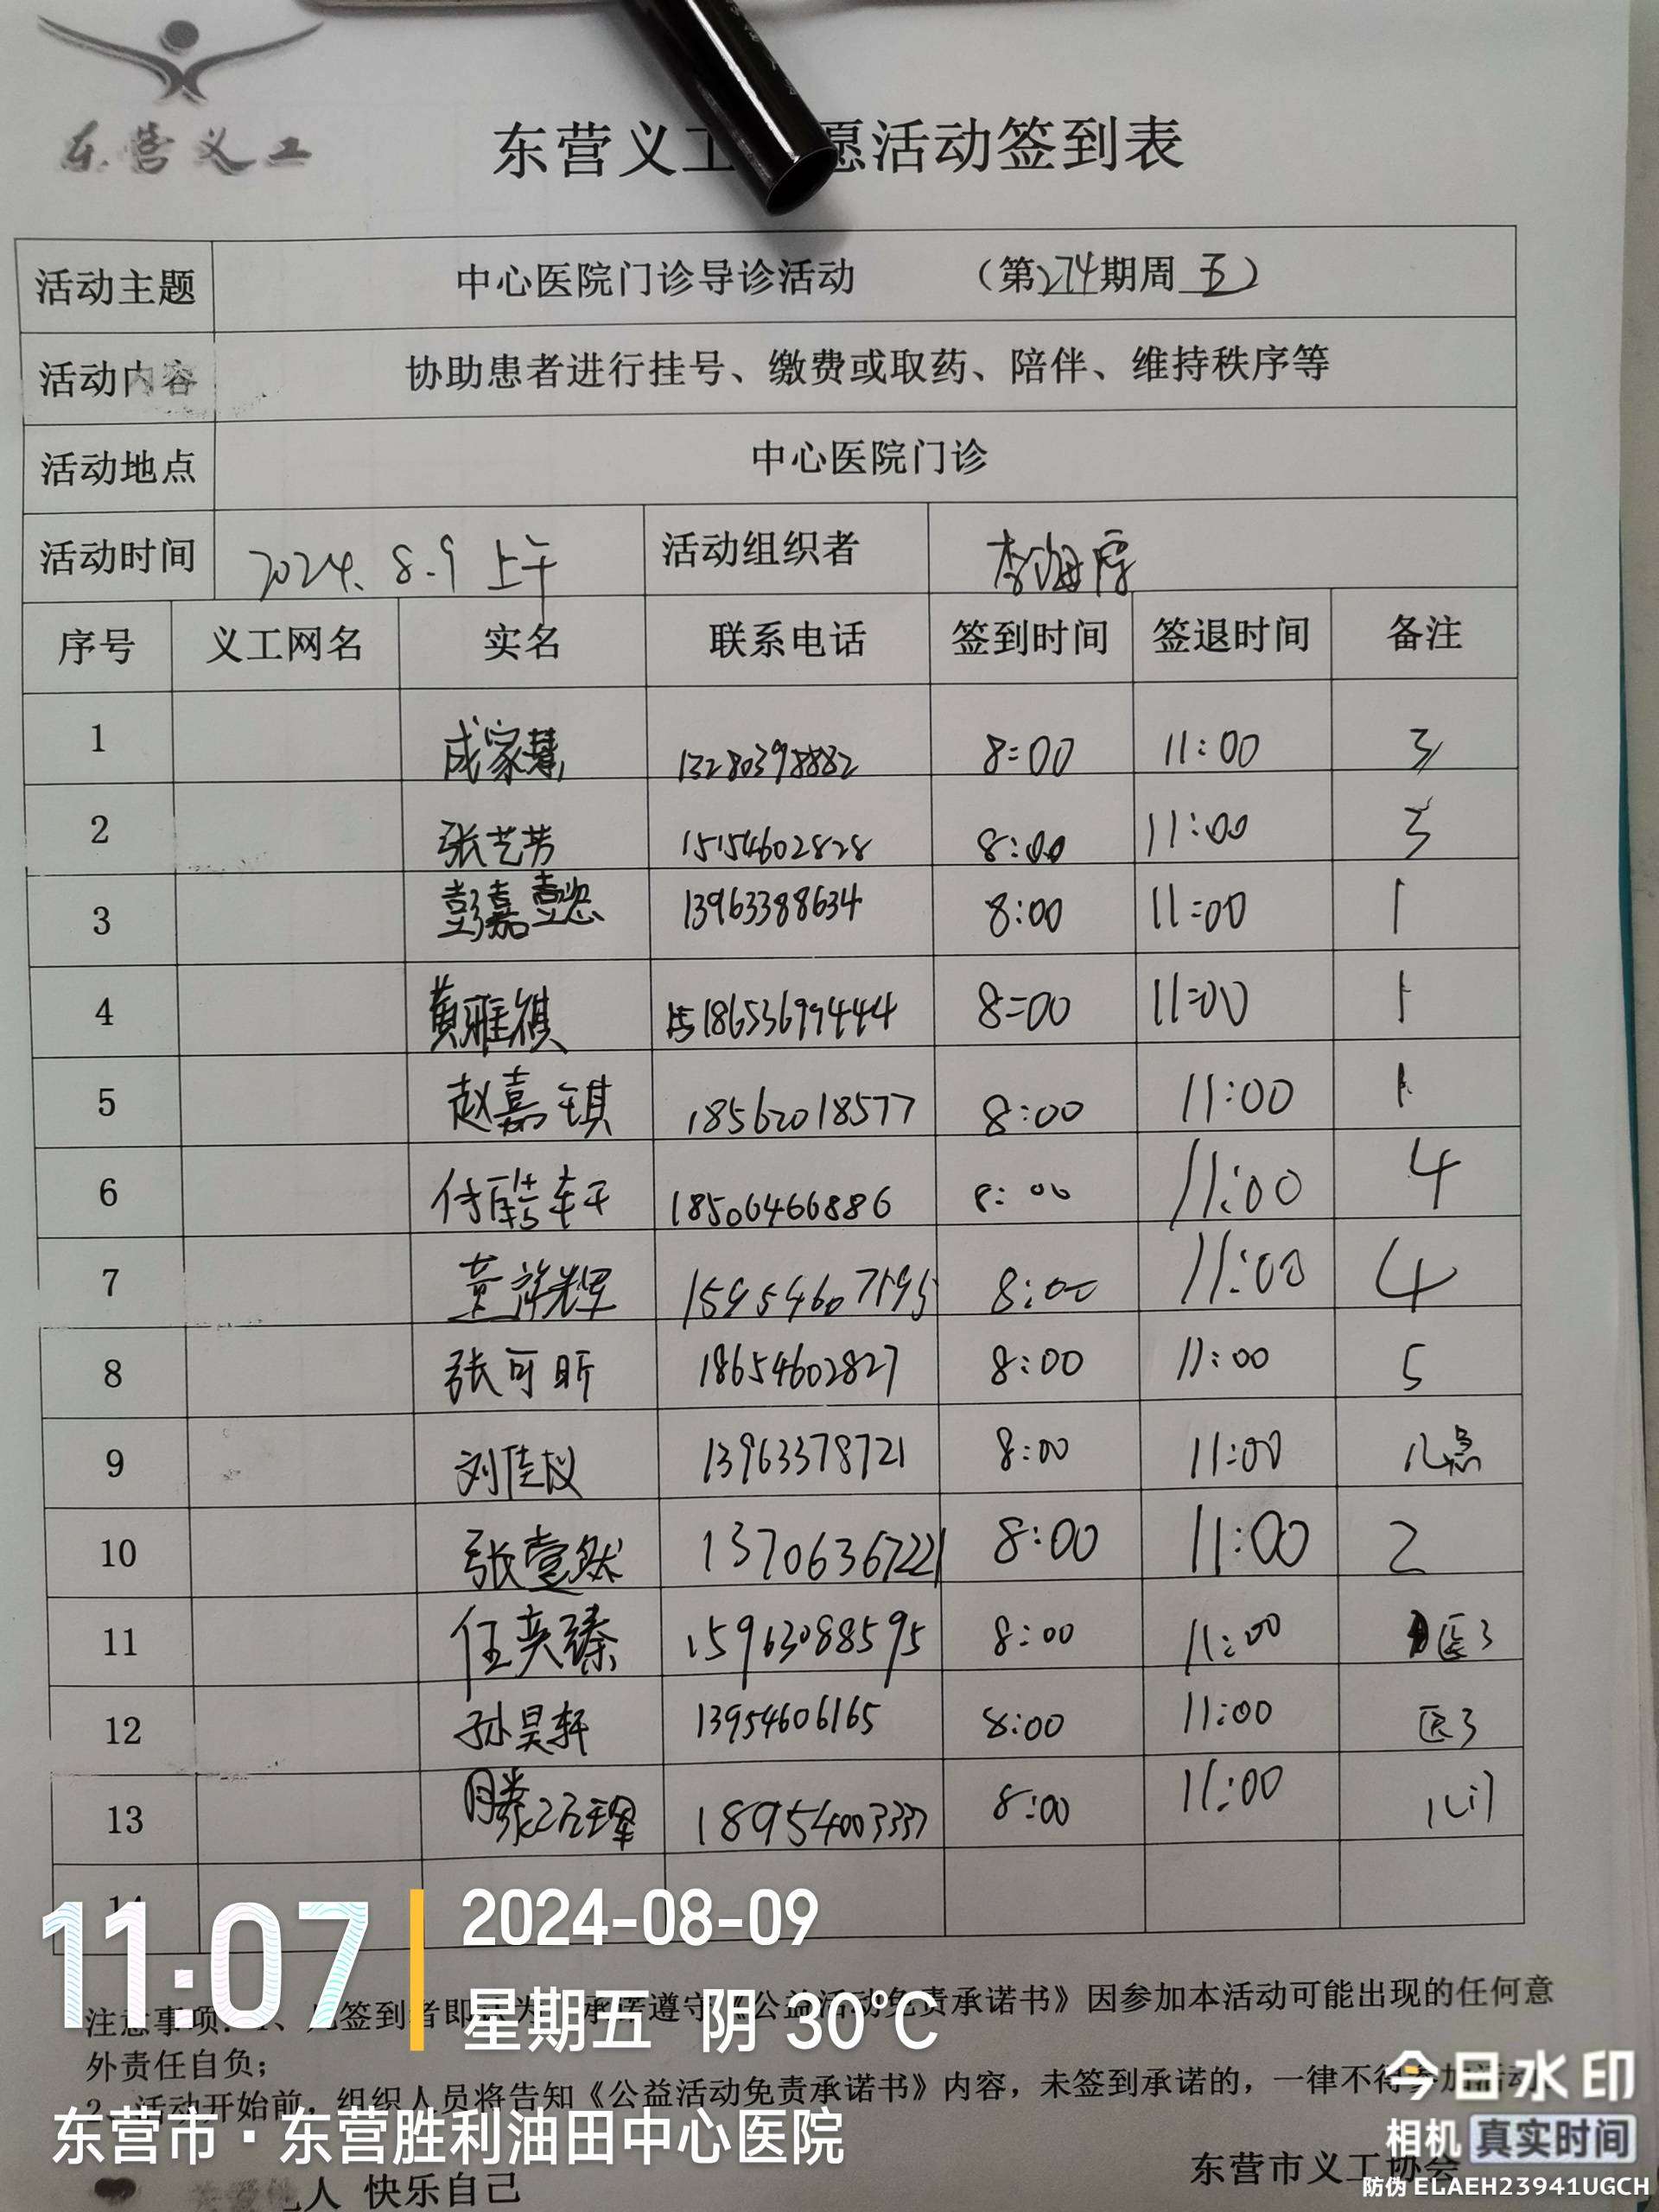 东营义工
东营义工 愿活动签到表
活动主题 中心医院门诊导诊活动 （第274期周五）
活动内容 协助患者进行挂号、缴费或取药、陪伴、维持秩序等
活动地点 中心医院门诊
活动时间 2024.8.9 上午 活动组织者
序号 义工网名 实名 联系电话 签到时间 签退时间 备注
1 成家慧 13280398882 8:00 11:00 3
2 张艺芳 15154602828 8:00 11:00 3
3 彭嘉懿 13963388634 8:00 11:00 1
4 黄雅祺 18653699444 8:00 11:00 1
5 赵嘉琪 18562018577 8:00 11:00 1
6 18506466886 8:00 11:00 4
7 8:00 11:00 4
8 张可昕 18654602827 8:00 11:00 5
9 刘佳仪 13963378721 8:00 11:00 儿急
10 张壹然 13706367221 8:00 11:00 2
11 任奕臻 15963088595 8:00 11:00 医3
12 孙昊轩 13954606165 8:00 11:00 医3
13 18954003337 8:00 11:00 儿门
14
11:07
2024-08-09
星期五 阴 30°C
注意事项：1、凡签到者即认为 承诺遵守《公益活动免责承诺书》因参加本活动可能出现的任何意
外责任自负；
2、活动开始前，组织人员将告知《公益活动免责承诺书》内容，未签到承诺的，一律不得参加活动
东营市·东营胜利油田中心医院
东营市义工协会
人 快乐自己
今日水印
相机 真实时间
防伪 ELAEH23941UGCH